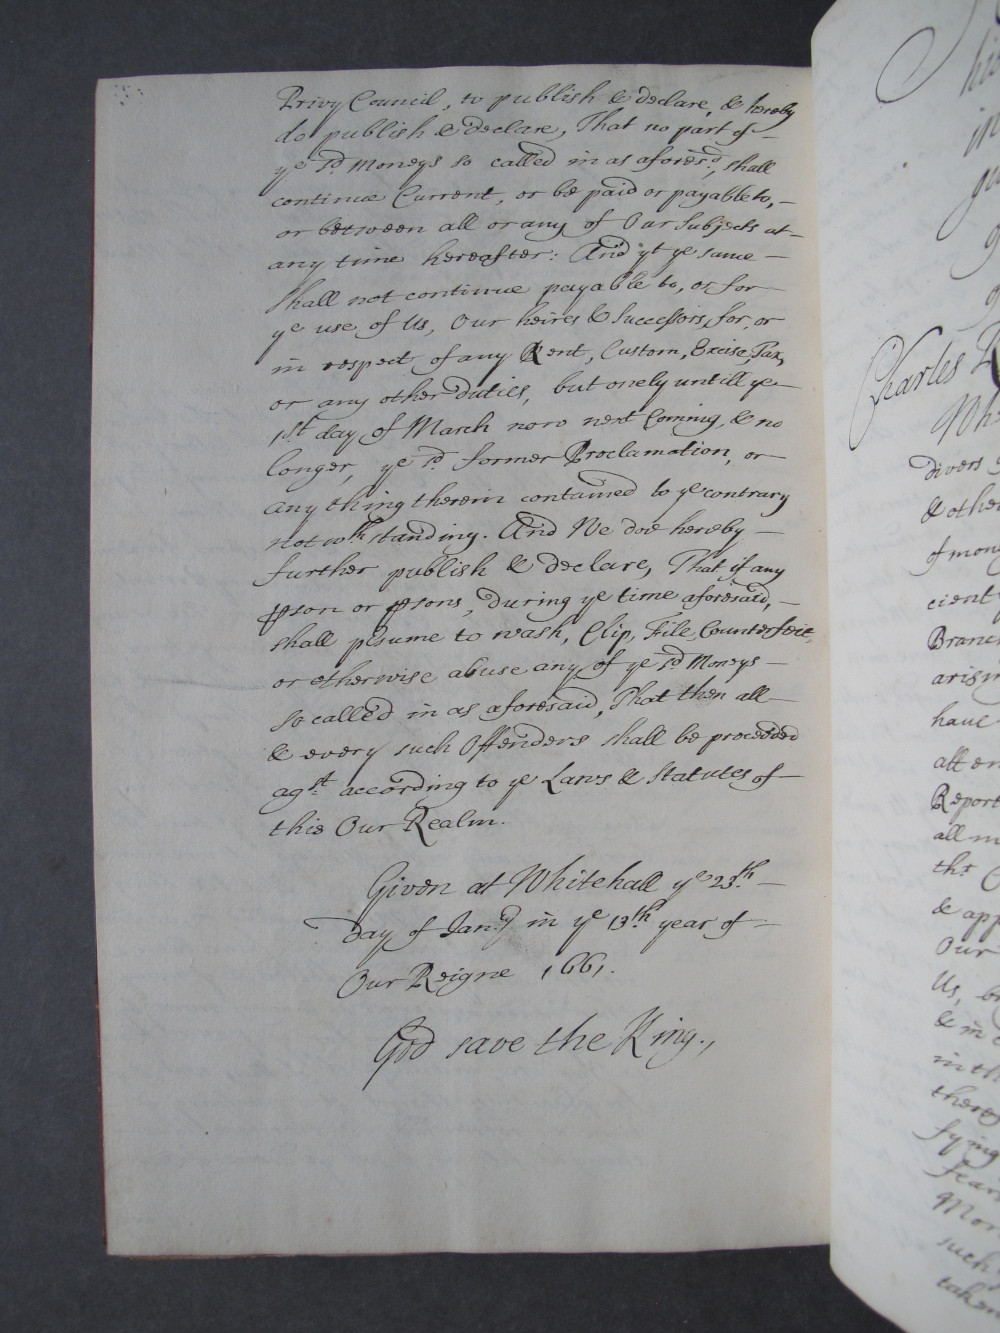 Privy Council, to publish & declare, & hereby
do publish & declare, That no part of
ye sd Moneys so called in as aforesd, shall
continue Current, or be paid or payable to,
or between all or any of Our Subjects at
any time hereafter: And yt ye same
shall not continue payable to, or for
ye use of Us, Our heires & Successors, for, or
in respect of any Rent, Custom, Excise, Tax,
or any other duties, but onely untill ye
1st day of March now next Coming, & no
longer, ye sd former Proclamation, or
any thing therein contained to ye contrary
notwthstanding. And We doe hereby
further publish & declare, That if any
pson or psons, during ye time aforesaid,
shall psume to wash, Clip, File, Counterfeit,
or otherwise abuse any of ye sd Moneys
so called in as aforesaid, That then all
& every such Offenders shall be proceeded
agst according to ye Laws & Statutes of
this Our Realm.
Given at Whitehall ye 23th
Day of Janry in ye 13th year of
Our Reigne 1661.
God save the King.,
Charles R
Whe
divers
& other
of mon
cient
Branc
arism
have
att en
Report
all m
tht
& app
Our
Us, b
& in
in th
there
fying
fear
Mor
such
taken